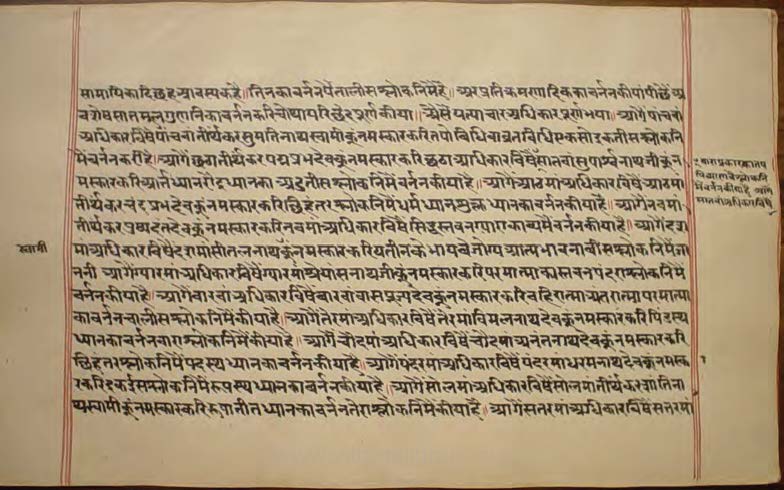 सामायिकादि छह आवस्यक है ॥ तिनका वर्नन पैंतालीस श्लोकनिमैं है ॥ अर प्रतिक्रमणादिकका वर्नन कीयां पीछैं अ
वशेष सात मूलगुणनिका वर्नन करि चोथा परिछेद पूर्ण कीया ॥ ऐसैं यत्याचार अधिकार पूर्ण भया ॥ आगैं पांचवां
अधिकार विषैं पांचवां तीर्थंकर सुमतिनाथ स्वामीकूं नमस्कार करि तपो विधि वा व्रत विधि एकसो इकतीस श्लोकनि
मैं वर्नन करी है ॥ आगैं छठा तीर्थंकर पद्मप्रभदेवकूं नमस्कार करि छठा अधिकार विषैं सातवां सुपार्श्वनाथजीकूं न
मस्कार करि आर्तध्यान रौद्रध्यानका अडतीस श्लोकनिमैं वर्नन कीया है ॥ आगैं आठमां अधिकार विषैं आठमां
तीर्थंकर चंद्रप्रभदेवकूं नमस्कार करि छिहतर श्लोकनिमैं धर्मध्यान शुक्लध्यानका वर्नन कीया है ॥ आगैं नवमां
तीर्थंकर पुष्पदंतदेवकूं नमस्कार करि नवमां अधिकार विषैं सिद्धस्तवन ग्यारा काव्यमैं वर्नन कीया है ॥ आगैं दश
मां अधिकार विषैं दशमां सीतलनाथकूं नमस्कार करि यतीनके भायवे जोग्य आत्मभावना वीस श्लोकनिमैं जा
ननी आगैं ग्यारमां अधिकार विषैं ग्यारमां श्रेयांसनाथजीकूं नमस्कार करि परमात्माका स्तवन पंदरा श्लोकनिमैं
वर्नन कीया है ॥ आगैं बारवां अधिकार विषैं बारवां वासपूज्यदेवकूं नमस्कार करि वहिरात्मा अंतरात्मा परमात्मा
का वर्नन चालीस श्लोकनिमैं कीया है ॥ आगैं तेरमां अधिकार विषैं तेरमां विमलनाथदेवकूं नमस्कार करि पिंडस्थ
ध्यानका वर्नन बारा श्लोकनिमैं कीया है ॥ आगैं चौदमां अधिकार विषैं चौदमां अनंतनाथदेवकूं नमस्कार करि
छिहतर श्लोकनिमैं पदस्थ ध्यानका वर्नन कीया है ॥ आगैं पंदरमां अधिकार विषैं पंदरमां धरमनाथदेवकूं नमस्
कार करि इकईस श्लोकनिमैं रूपस्थ ध्यानका वर्नन कीया है ॥ आगैं सोलमां अधिकार विषैं सोलमां तीर्थंकर शांतिना
थ स्वामीकूं नमस्कार करि रूपातीत ध्यानका वर्नन तेरा श्लोकनिमैं कीया है ॥ आगैं सतरमां अधिकार विषैं सतरमां
स्वामी